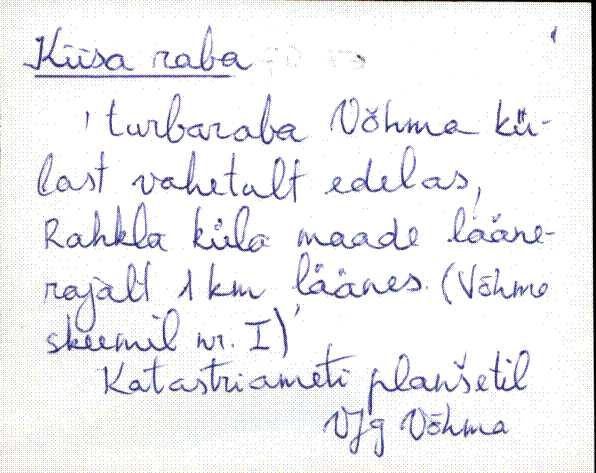 Küsa raba
turbaraba Võhma kü-
last vahetult edelas,
Rahkla küla maade lääne-
rajalt 1 km läänes. (Võhma
skeemil nr. I)
Katastriameti planšetil
VJg Võhma